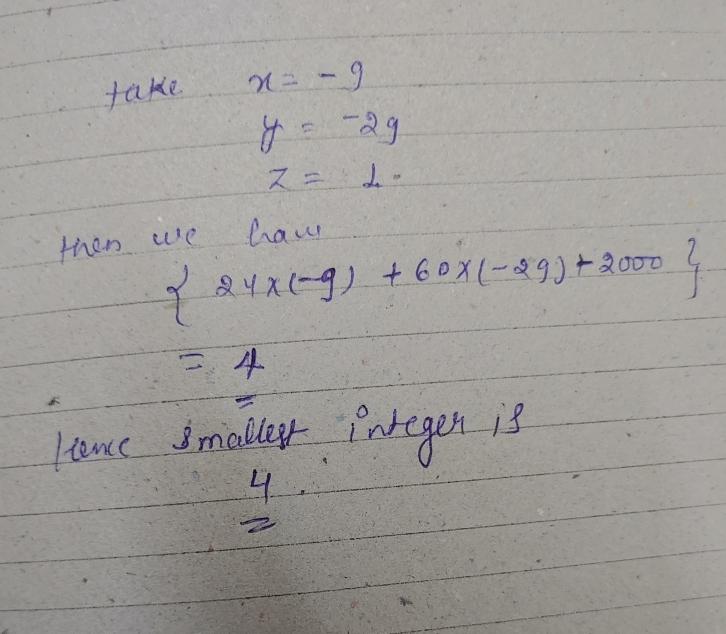 take x = -9
y = -29
z = 1.
then we have
{ 24x(-9) + 60x(-29) + 2000 }
= 4
Hence smallest integer is
4.